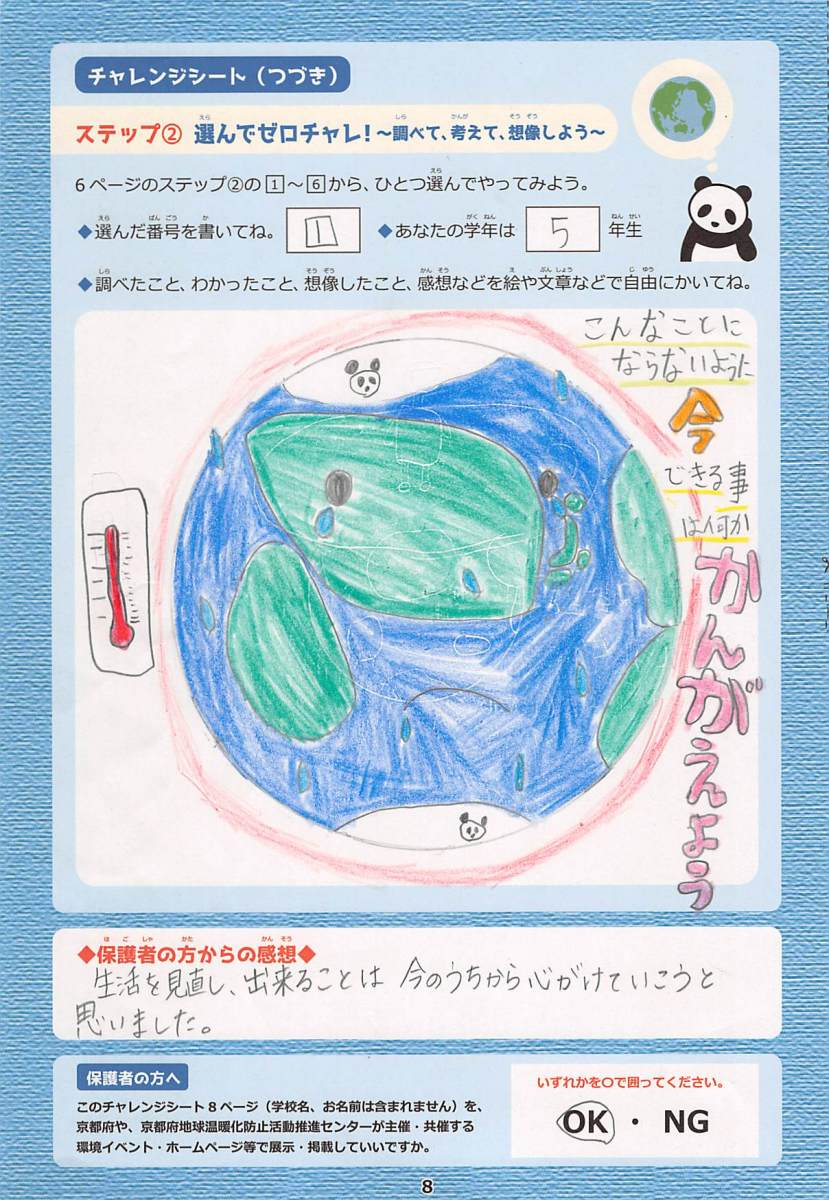 チャレンジシート（つづき）
ステップ② 選んでゼロチャレ！～調べて、考えて、想像しよう～
6ページのステップ②の1～6から、ひとつ選んでやってみよう。
◆選んだ番号を書いてね。 1 ◆あなたの学年は 5 年生
◆調べたこと、わかったこと、想像したこと、感想などを絵や文章などで自由にかいてね。
こんなことに
ならないように
今
できる事
は何か
かんがえよう
◆保護者の方からの感想◆
生活を見直し、出来ることは 今のうちから心がけていこうと
思いました。
保護者の方へ
このチャレンジシート8ページ（学校名、お名前は含まれません）を、
京都府や、京都府地球温暖化防止活動推進センターが主催・共催する
環境イベント・ホームページ等で展示・掲載していいですか。
いずれかを〇で囲ってください。
OK ・ NG
8